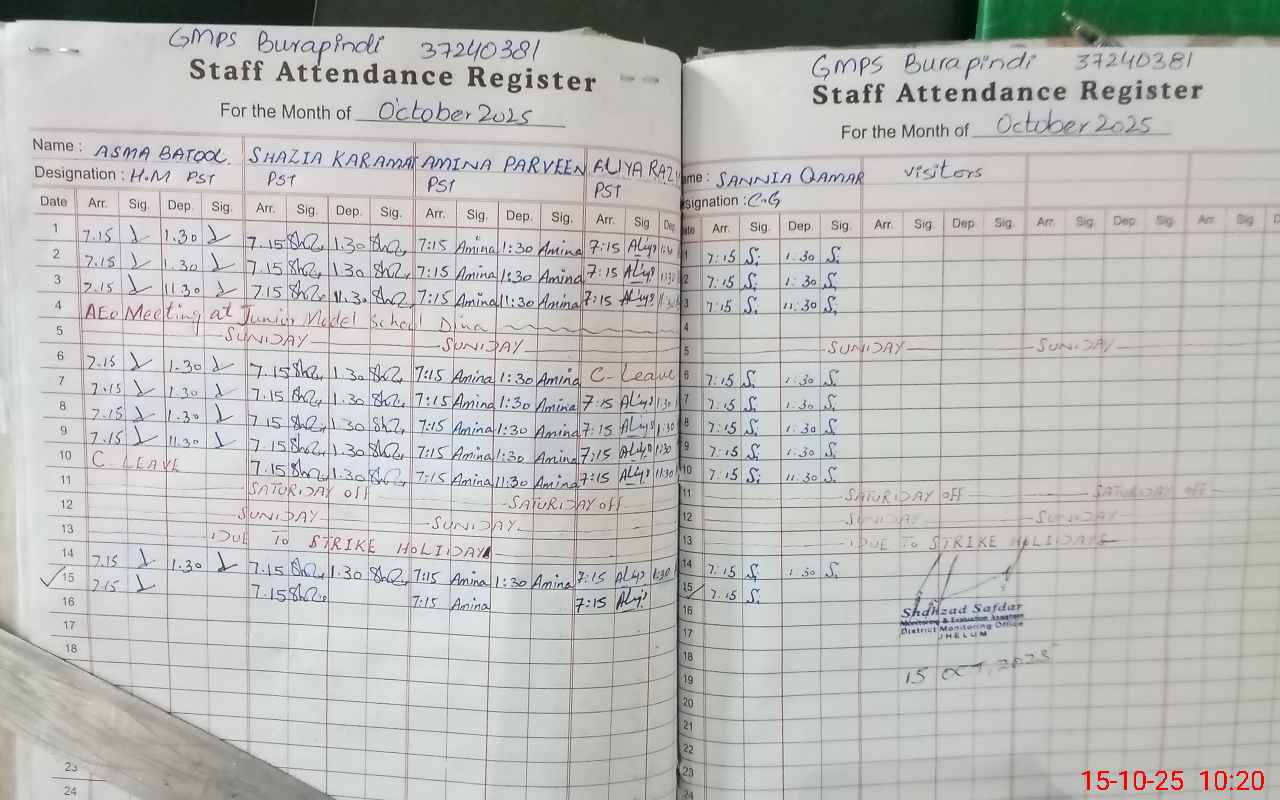 GMPS Burapindi 37240381
Staff Attendance Register
For the Month of October 2025
Name : ASMA BATOOL. SHAZIA KARAMAT AMINA PARVEEN ALIYA RAZ
Designation : H.M PST PST PST PST
Date Arr. Sig. Dep. Sig. Arr. Sig. Dep. Sig. Arr. Sig. Dep. Sig. Arr. Sig Dep
1 7.15 1.30 7.15 1.30 7:15 Amina 1:30 Amina 7:15 Aliya 1:30
2 7.15 1.30 7.15 1.30 7:15 Amina 1:30 Amina 7:15 Aliya 1:30
3 7.15 11.30 7.15 11.30 7:15 Amina 11:30 Amina 7:15 Aliya 11:30
4 AEO Meeting at Junior Model School Dina
5 SUNDAY SUNDAY
6 7.15 1.30 7.15 1.30 7:15 Amina 1:30 Amina C-Leave
7 7.15 1.30 7.15 1.30 7:15 Amina 1:30 Amina 7:15 Aliya 1:30
8 7.15 1.30 7.15 1.30 7:15 Amina 1:30 Amina 7:15 Aliya 1:30
9 7.15 11.30 7.15 1.30 7:15 Amina 1:30 Amina 7:15 Aliya 1:30
10 C. LEAVE 7.15 1.30 7:15 Amina 11:30 Amina 7:15 Aliya 11:30
11 SATURDAY off SATURDAY off
12 SUNDAY SUNDAY
13 DUE TO STRIKE HOLIDAY
14 7.15 1.30 7.15 1.30 7:15 Amina 1:30 Amina 7:15 Aliya 1:30
15 7.15 7.15 7:15 Amina 7:15 Aliya
16
17
18
23
24
GMPS Burapindi 37240381
Staff Attendance Register
For the Month of October 2025
ame : SANNIA QAMAR visitors
signation : C.G
ate Arr. Sig. Dep. Sig. Arr. Sig. Dep Sig. Arr. Sig. Dep. Sig. Arr Sig D
1 7:15 S. 1.30 S.
2 7:15 S. 1:30 S.
3 7:15 S. 11:30 S.
4
5 SUNDAY SUNDAY
6 7:15 S. 1:30 S.
7 7:15 S. 1.30 S.
8 7:15 S. 1:30 S.
9 7:15 S. 1.30 S.
10 7:15 S. 11.30 S.
11 SATURDAY off SATURDAY off
12 SUNDAY SUNDAY
13 DUE TO STRIKE HOLIDAYS
14 7:15 S. 1:30 S.
15 7:15 S.
16
17
18
19
20
21
22
23
24
Shahzad Safdar
Monitoring & Evaluation Assistant
District Monitoring Office
JHELUM
15 OCT, 2025
15-10-25 10:20